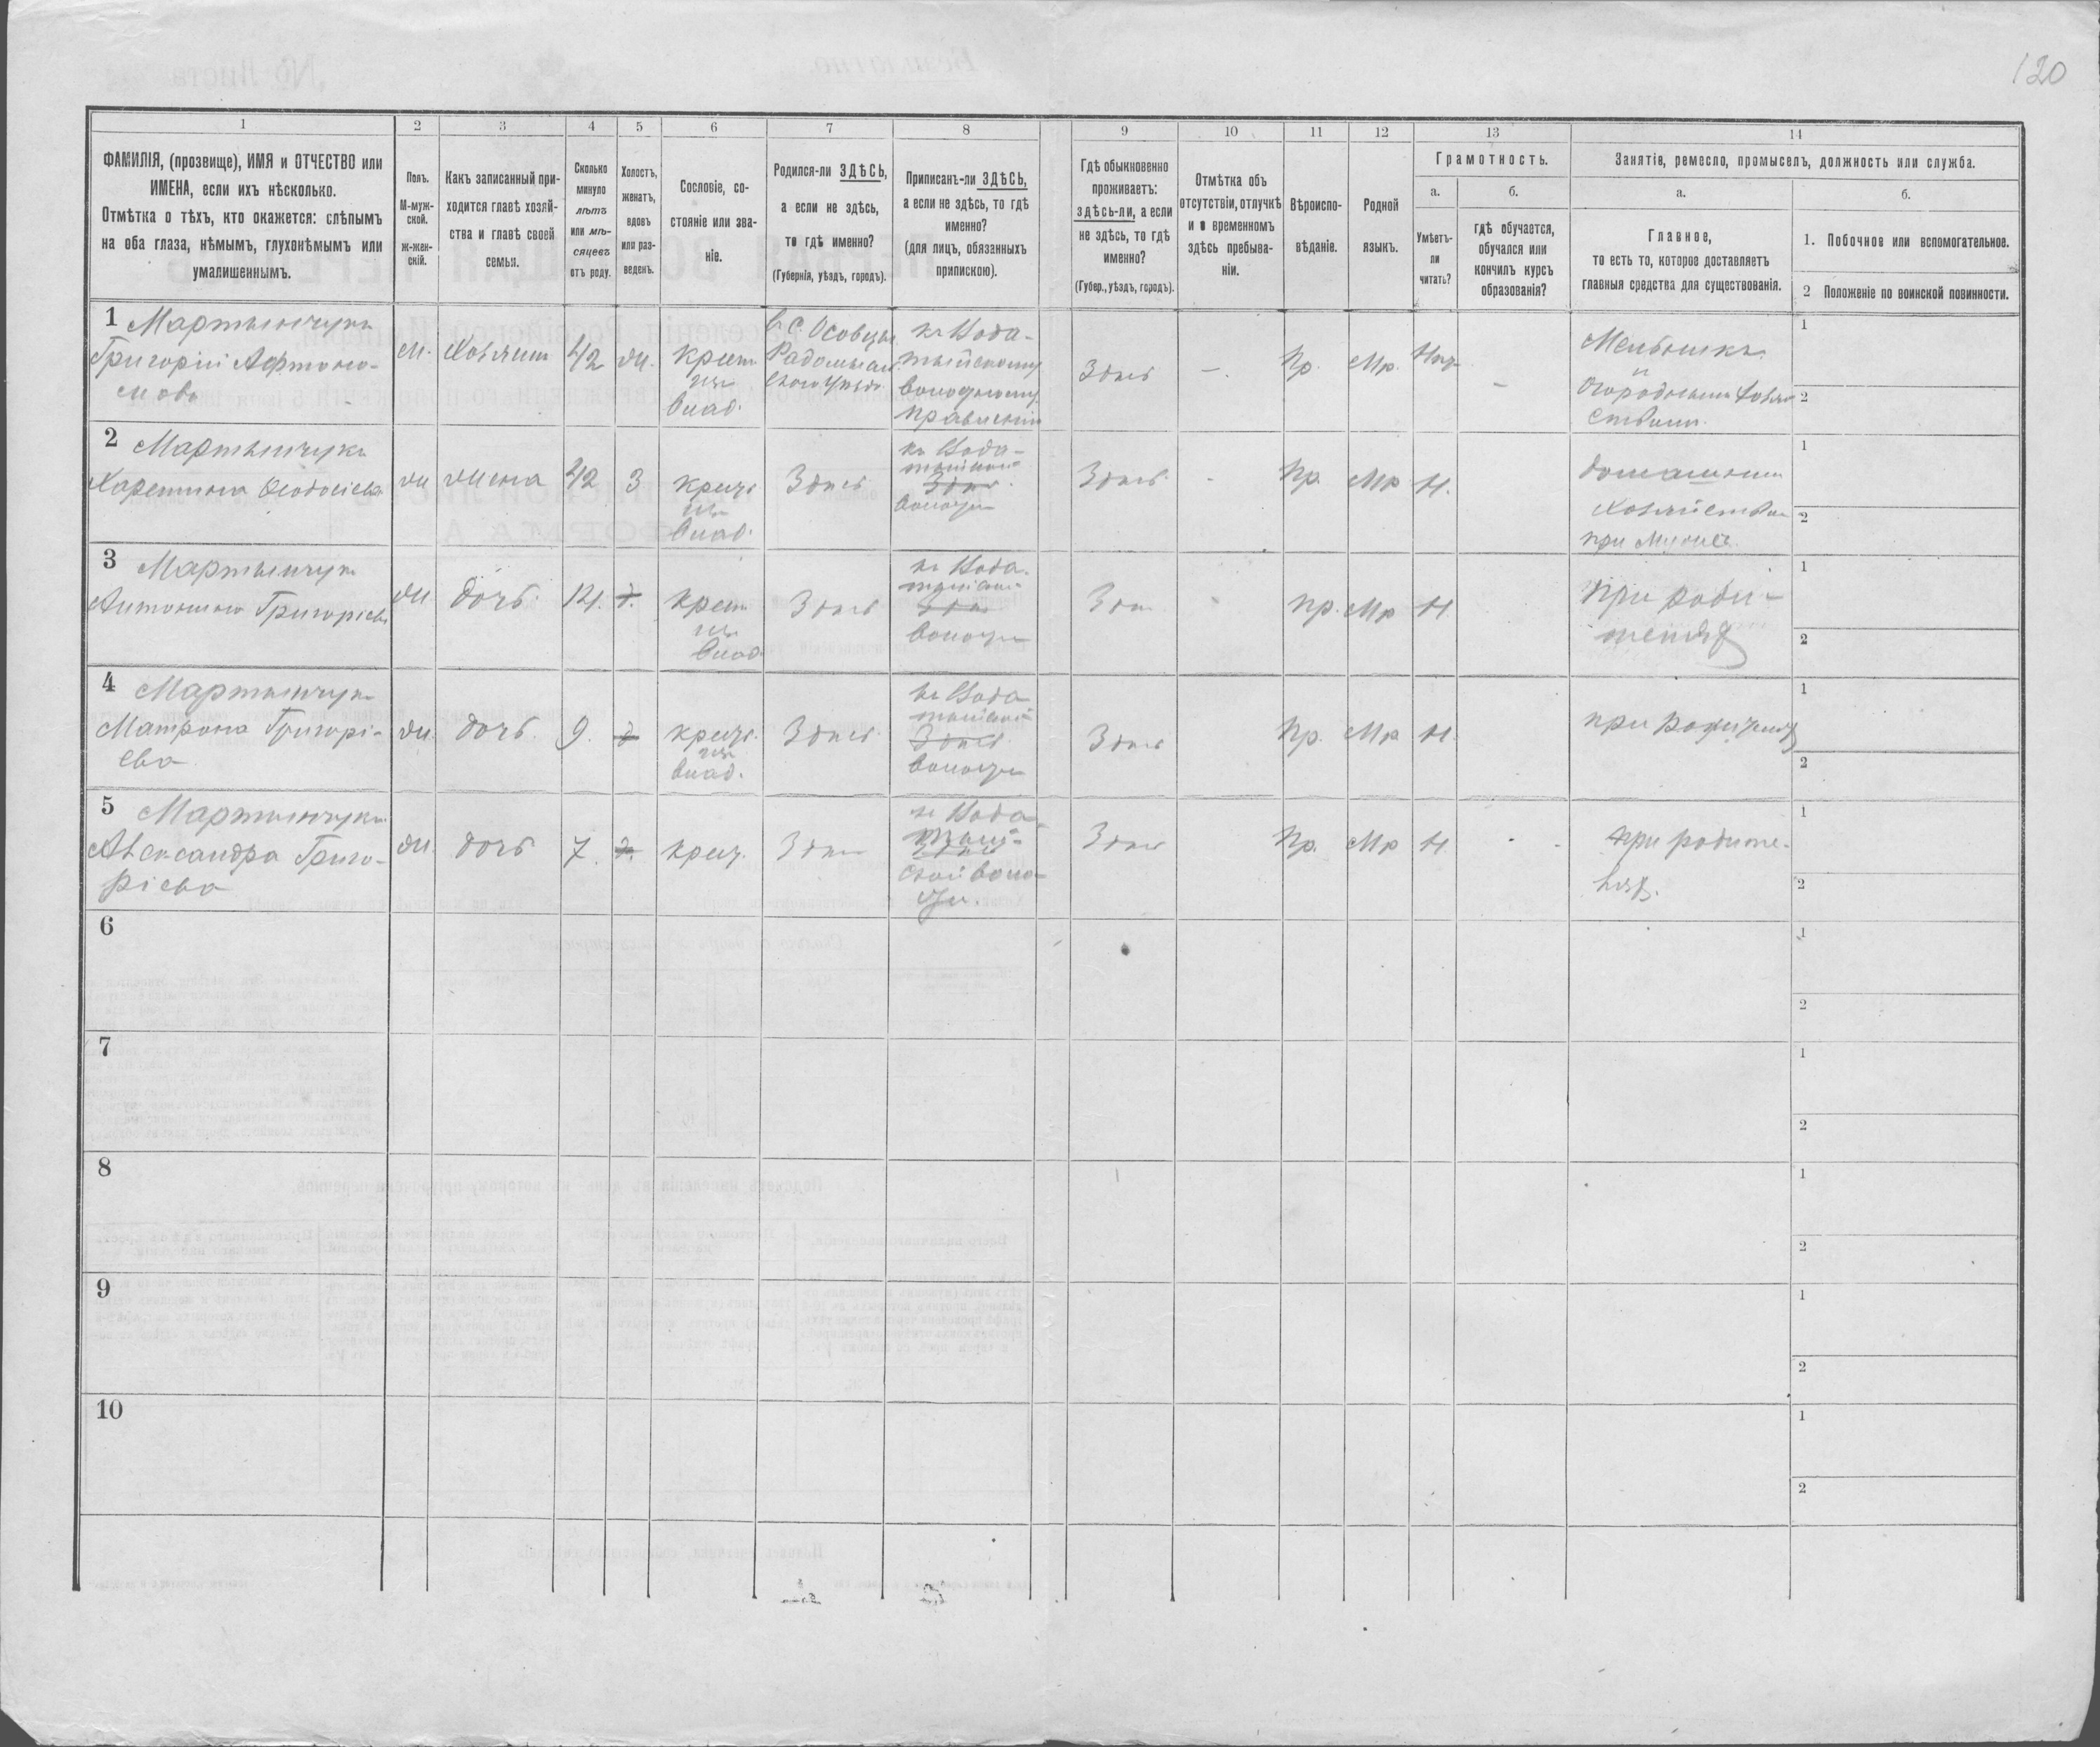 120
1
2
3
4
5
6
7
8
9
10
11
12
13
14
ФАМИЛІЯ, (прозвище), ИМЯ и ОТЧЕСТВО или
ИМЕНА, если ихъ нѣсколько.
Отмѣтка о тѣхъ, кто окажется: слѣпымъ
на оба глаза, нѣмымъ, глухонѣмымъ или
умалишеннымъ.
Полъ.
М-муж-
ской.
ж-жен-
скій.
Какъ записанный при-
ходится главѣ хозяй-
ства и главѣ своей
семьи.
Сколько
минуло
лѣтъ
или мѣ-
сяцевъ
отъ роду.
Холостъ,
женатъ,
вдовъ
или раз-
веденъ.
Сословіе, со-
стояніе или зва-
ніе.
Родился-ли ЗДѢСЬ,
а если не здѣсь,
то гдѣ именно?
(Губернія, уѣздъ, городъ).
Приписанъ-ли ЗДѢСЬ,
а если не здѣсь, то гдѣ
именно?
(для лицъ, обязанныхъ
припискою).
Гдѣ обыкновенно
проживаетъ:
здѣсь-ли, а если
не здѣсь, то гдѣ
именно?
(Губер., уѣздъ, городъ).
Отмѣтка объ
отсутствіи, отлучкѣ
и о временномъ
здѣсь пребыва-
ніи.
Вѣроиспо-
вѣданіе.
Родной
языкъ.
Грамотность.
а.
Умѣетъ-
ли
читать?
б.
гдѣ обучается,
обучался или
кончилъ курсъ
образованія?
Занятіе, ремесло, промыселъ, должность или служба.
а.
Главное,
то есть то, которое доставляетъ
главныя средства для существованія.
б.
1. Побочное или вспомогательное.
2 Положеніе по воинской повинности.
1 Мартынчукъ
Григорій Афтоно-
мовъ
М.
Хозяинъ
42
ж.
крест
изъ
влад.
в с. Осовцы
Радомысл
скаго уѣзда
къ Вода-
тыйскому
волостному
правленію
Здѣсь
-.
Пр.
Мр.
Нѣт
-
Мельникъ
и
огородным хозяй
ством
1
2
2 Мартынчукъ
Харетина Феодосіева
ж
жена
42
З
крест
изъ
влад.
Здѣсь
къ Вода-
тыйской
Здѣсь
волости
Здѣсь
-
Пр.
Мр
Н.
домашним
хозяйством
при мужѣ
1
2
3 Мартынчукъ
Антонина Григоріева
ж
дочь
12.
д.
крест
изъ
влад
Здѣсь
къ Вода-
тыйской
Здѣсь
волости
Здѣсь
-
пр.
Мр
Н.
при роди-
телях
1
2
4 Мартынчукъ
Матрона Григорі-
ева
ж.
дочь.
9.
д
крест.
изъ
влад.
Здѣсь
къ Вода-
тыйской
Здѣсь
волости
Здѣсь
Пр.
Мр
Н.
при родителях
1
2
5 Мартынчукъ
Александра Григо-
ріева
ж.
дочь
7.
д.
крест.
Здѣсь
къ Вода-
тый-
Здѣсь
ской воло-
сти.
Здѣсь
Пр.
Мр
Н
-
-
при родите-
лях.
1
2
6
1
2
7
1
2
8
1
2
9
1
2
10
1
2